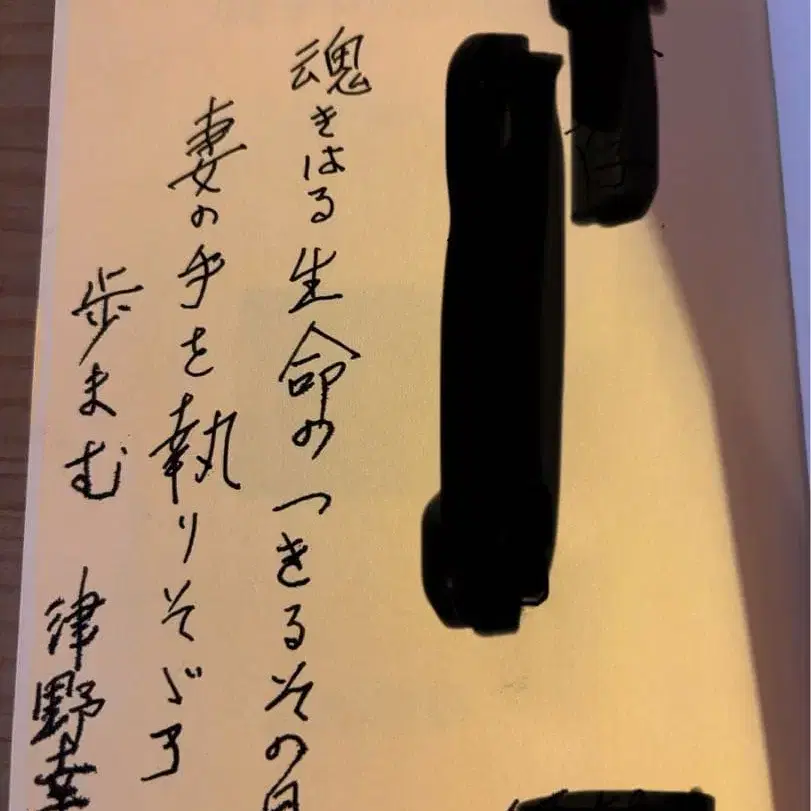 魂きはる生命のつきるその日
妻の手を執りそゞろ
歩まむ 津野幸